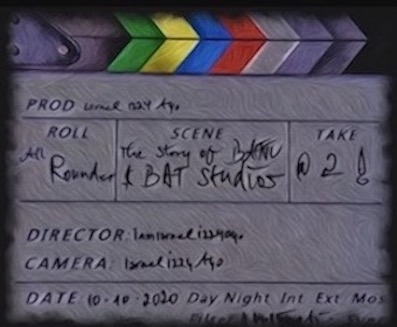 PROD Israel izzy Ayo
ROLL SCENE TAKE
All The Story of BATNU @ 2 !
Rounder & BAT Studios
DIRECTOR: Iamisraelizzyayo.
CAMERA: Israel izzy Ayo
DATE 10-10-2020 Day Night Int Ext Mos